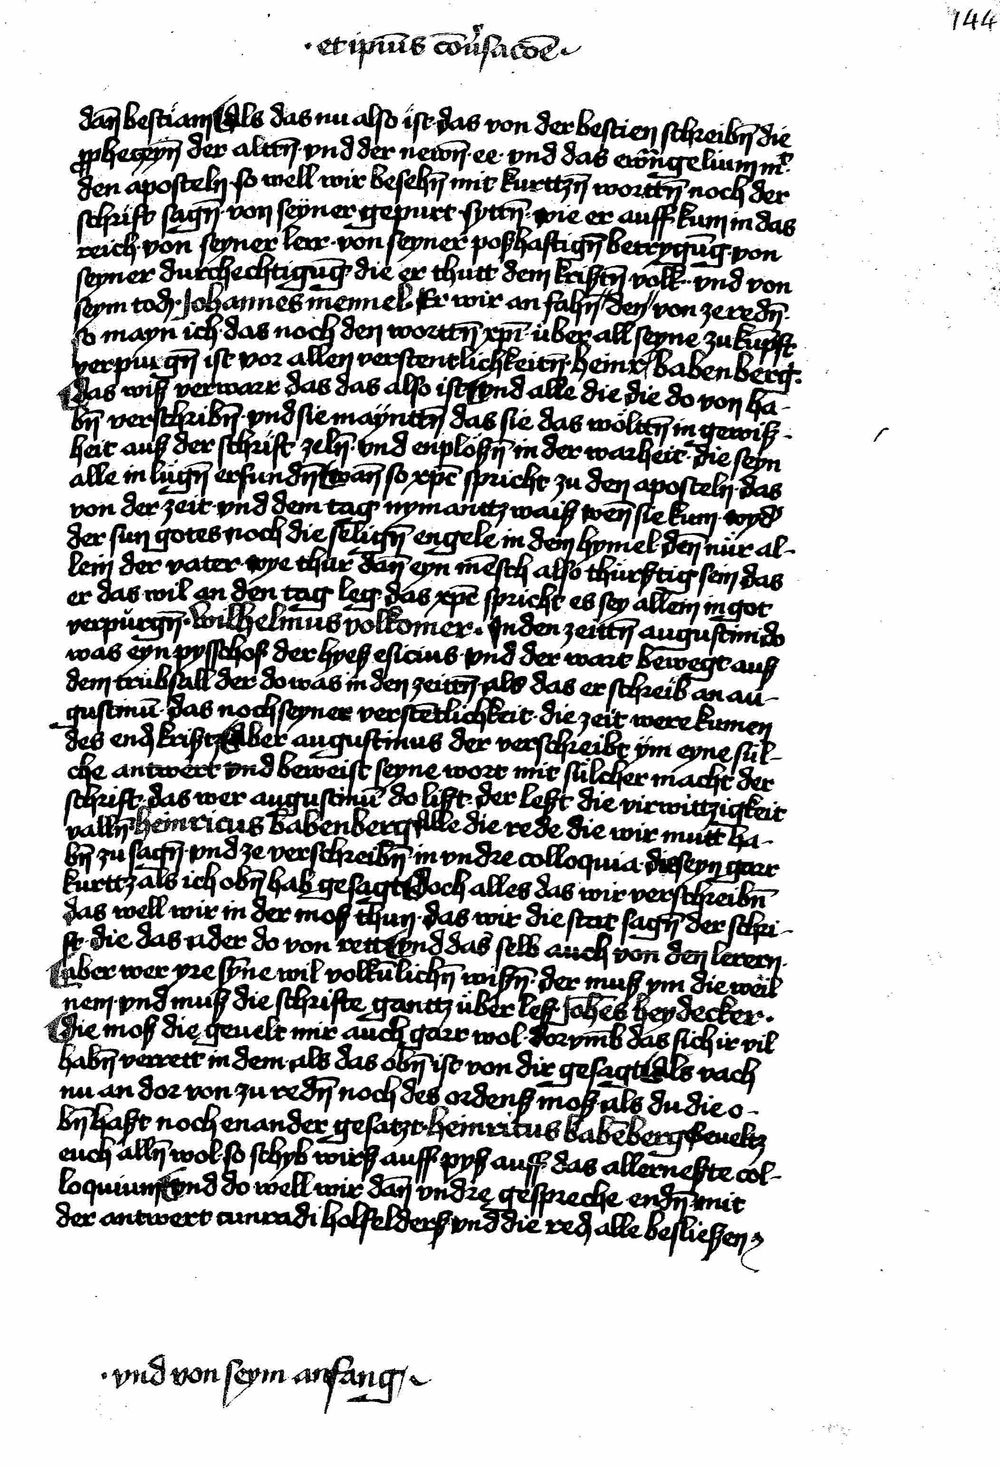 144
· et ipīus cōūsacōe ·
dān bestiam Als das nu also ist · das von der bestien schreibn̄ die
ꝓpheceyn̄ der altn̄ · vnd der newn̄ · ee · vnd das ewāngelium mt̄ ·
den aposteln · so well wir besehn̄ mit kurttzn̄ worttn̄ · noch der
schrift sagn̄ · von seyner gepurt · syttn̄ · wie er auff · kum in das
reich · von seyner lerr · von seyner poßhaftign̄ betrygūg · von
seyner durchechtigūg die er thutt dem kristn̄ volk · vnd von
seym tod · Johannes mennel · Er wir an fahn̄ den von ze redn̄ ·
so mayn ich · das noch den worttn̄ xpī · über all seyne zukunft
verpurgn̄ ist vor allen verstentlichkeitn̄ · heinr babenberg ·
das wiß verwarr das das also ist vnd alle die die do von ha-
bn̄ verschribn̄ · vnd sie maÿnttn̄ das sie das wöltn̄ in gewiß-
heit auß der schrift · zeln̄ · vnd enplößn̄ in der warheit · die seyn
alle in lügn̄ erfundn̄ wān so xpc̄ spricht zu den aposteln · das
von der zeit · vnd dem tag nymanttz waiß wen̄ sie kum · wyd
der sun gotes noch die selign̄ engele in dem hymel · den̄ nür al-
lein der vater · wye thür dān eyn mēsch also thürstig sein das
er das wil an den tag leg das xpc̄ spricht es sey allein in got
verpürgn̄ · Wilhelmus volkomer · In den zeittn̄ augustini do
was eyn pysschof der hyeß esicius · vnd der wart bewegt auß
dem trübsall der do was in den zeittn̄ · als das er schreib an au-
gustinū · das noch seyner verstētlichkeit · die zeit were kumen
des endkristz Aber augustinus der verschreibt ÿm eyne sül-
che antwert vnd beweist seyne wort mit sülcher macht der
schrift · das wer augustinū do list · der lest die virwittzigkeit
valln̄ heinricus babenberg Alle die rede die wir mutt ha-
bn̄ zu sagn̄ · vnd ze verschreibn̄ · in vndre colloquia · die seyn garr
kurttz als ich obn̄ hab gesagt Doch alles das wir verschreibn̄
das well wir in der moß thun · das wir die stat sagn̄ der schri-
ft · die das ader do von rett vnd das selb auch von den lerern ·
Aber wer yre sȳne wil volkūlichn̄ wißn̄ · der muß ym die weil
nem · vnd muß die schrifte gantz über leß Joh̄es heydecker ·
die moß die gevelt mir auch garr wol · dorvmb das sich ir vil
habn̄ verrett in dem · als das obn̄ ist von dir gesagt Als vach
nu an dor von zu redn̄ noch des ordenß moß als du die o-
bn̄ hast noch enander gesatzt · heinricus babēberg Geveltz
euch alln̄ wol · so schyb wirß auff pyß auff · das allerneste col-
loquium vnd do well wir dān vndre gespreche endn̄ mit
der antwert cunradi holfelderß vnd die red alle besließen
· vnd von seym anfang ·